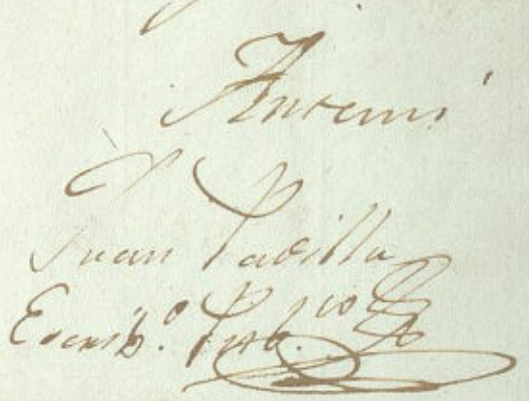 Antemi
Juan Padilla
Escrib.º Pub.co